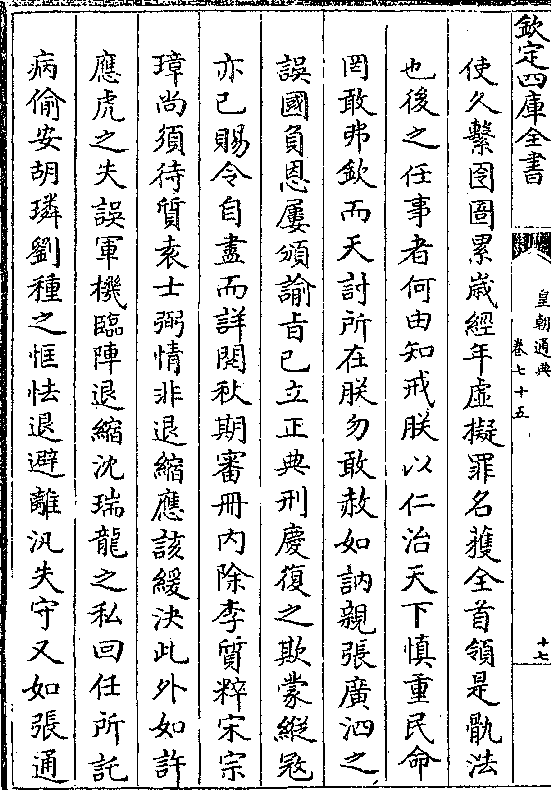 欽定四庫全書
皇朝通典
卷七十五
十七
使久繫囹圄累歲經年虛擬罪名獲全首領是骫法
也後之任事者何由知戒朕以仁治天下慎重民命
罔敢弗欽而天討所在朕勿敢赦如訥親張廣泗之
誤國負恩屢頒諭旨已立正典刑慶復之欺蒙縱寇
亦已賜令自盡而詳閱秋期審冊內除李質粹宋宗
璋尚須待質袁士弼情非退縮應該緩決此外如許
應虎之失誤軍機臨陣退縮沈瑞龍之私回任所託
病偷安胡璘劉種之恇怯退避離汛失守又如張通